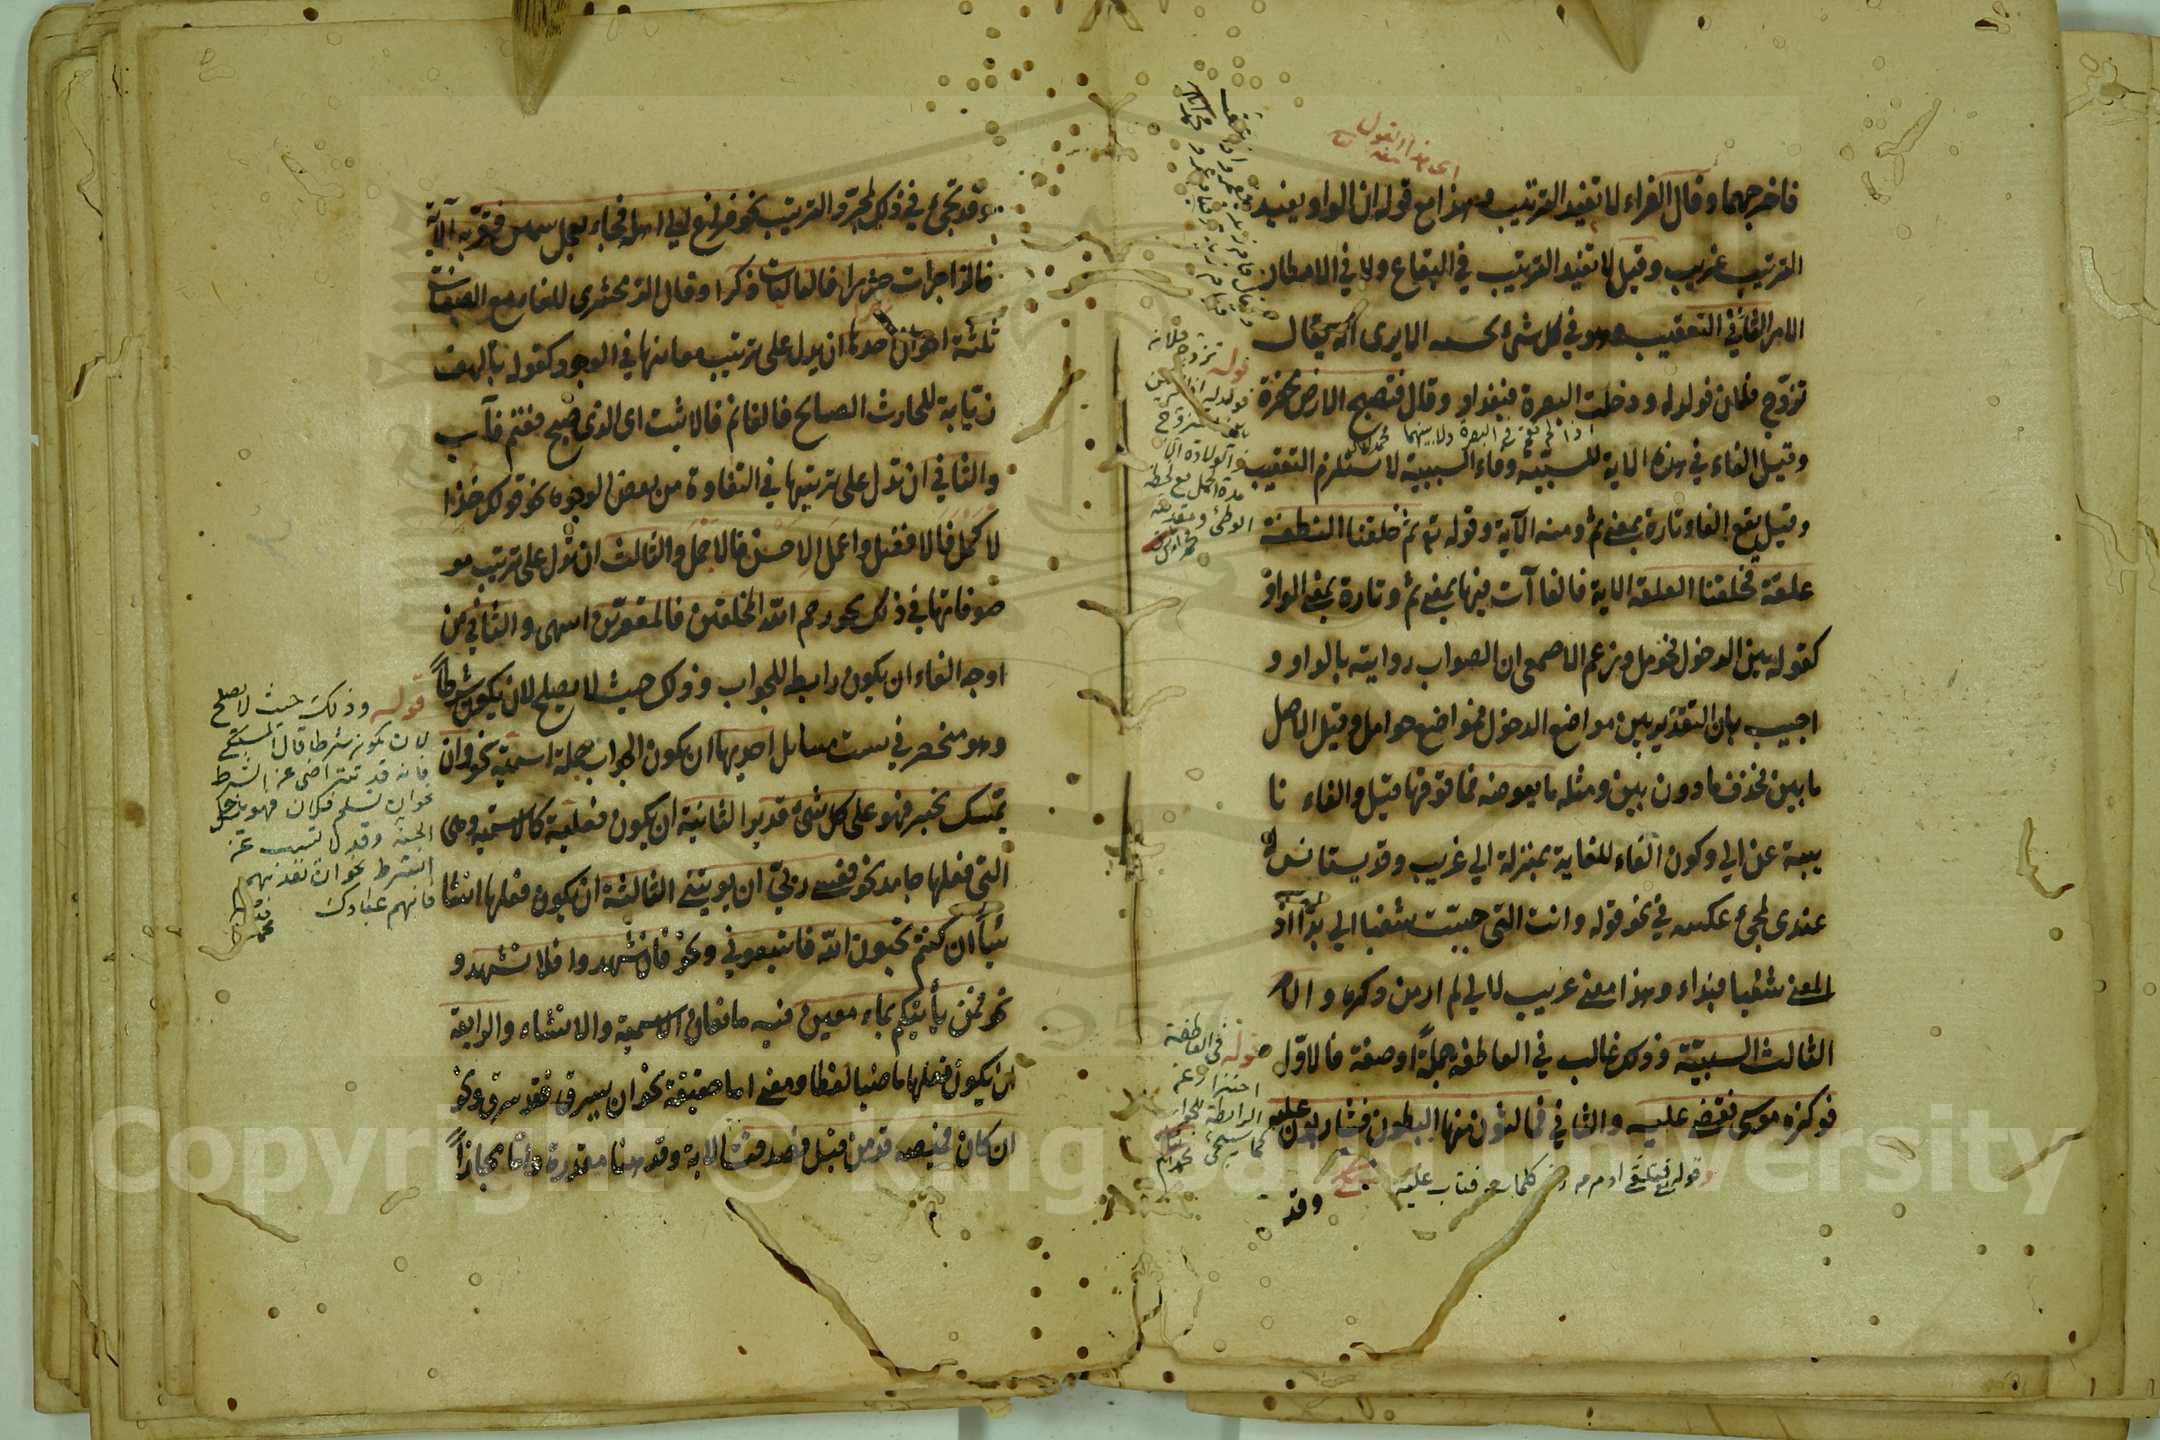 اى هذا القول منه
فاخرجهما وقال الفراء لا تفيد الترتيب وهذا مع قوله ان الواو يفيد
الترتيب غريب وقيل لا تفيد الترتيب في البقاع ولا في الامطار
الامر الثاني التعقيب وهو في كل شئ بحسبه الا يرى انه يقال
تزوّج فلان فولد له ودخلت البصرة فبغداد وقال فتصبح الارض مخضرة
اذا لم تقم في البصرة ولا بينهما
وقيل الفاء في هذه الاية للسببيّة وفاء السببية لا تستلزم التعقيب
وقيل يقع الفاء تارة بمعنى ثم ومنه الآية وقوله تع ثم خلقنا النطفة
علقة فخلقنا العلقة الاية فالفاآت فيها بمعنى ثم وتارة بمعنى الواو
كقوله بين الدخول فحومل وزعم الاصمعي ان الصواب روايته بالواو و
اجيب بان التقدير بين مواضع الدخول فمواضع حوامل وقيل الاصل
ما بين فحذف ما دون بين ومثله ما بعوضه فما فوقها قيل والفاء نا
يبة عن الي وكون الفاء للغاية بمنزلة الي غريب وقد يستانس له
عندى لمجئ عكسه في نحو قوله وانت التى حببت شغبا الي بدا اذ
المعنى شغبا فبداء وهذا معنى غريب لالي لم ار من ذكره والامر
الثالث السببيّة وذلك غالب في العاطفة جملةً او صفة فالاوّل
فوكزه موسى فقضى عليه والثاني فمالئون منها البطون فشاربون عليه
وقوله فتلقى ادم من ربه كلمات فتاب عليه
وقد
قوله تزوج فلان
فولد له
مدة الحمل مع لحظة
الوطئ ومقدمته
قوله في العاطفة
احترازا عن
الرابطة للجواب
كما سيجئ
وقد تجئ في ذلك لمجرد الترتيب نحو فراغ الي اهله فجاء بعجل سمين فقربه الآية
فالزاجرات زجرا فالتاليات ذكرا وقال الزمخشرى للفاء مع الصفات
ثلثة احوال احدها ان يدل على ترتيب معانيها في الوجود كقوله يا لهف
زيّابة للحارث الصابح فالغانم فالآئب اى الذى صبح فغنم فآب
والثاني ان تدل على ترتيبها في التفاوة من بعض الوجوه نحو قولك خذ ا
لاكمل فالافضل واعمل الاحسن فالاجمل والثالث ان تدل على ترتيب مو
صوفاتها في ذلك نحو رحم الله المحلقين فالمقصرين انتهى والثاني من
اوجه الفاء ان يكون رابط للجواب وذلك حيث لا يصلح لان يكون شرطاً
وهو منحصر في ست مسائل احديها ان يكون الجواب جملة اسميّة نحو وان
يمسسك بخير فهو على كل شئ قدير الثانية ان يكون فعلية كالاسميه وهى
التى فعلها جامد نحو فعسى ربّي ان يوتيني الثالثة ان يكون فعلها انشا
ئياً ان كنتم تحبون الله فاتبعوني ونحو فان شهدوا فلا تشهد و
نحو فمن يأتيكم بماء معين فيه مانعان الاسمية والانشاء والرابعة
ان يكون فعلها ماضيا لفظا ومعنى اما حقيقة نحو ان يسرق فقد سرق ونحو
ان كان قميصه قد من قبل فصدقت الاية وقد هنا مقدرة وامّا مجازاً
قوله وذلك حيث لا يصلح
لان يكون شرطا قال السبكى
فانه قد تتراخى عن الشرط
نحو ان تسلم فلان فهو يدخل
الجنة وقد لا تتسبب عن
الشرط نحو ان تعذبهم
فانهم عبادك
Copyright © King Saud University
1957